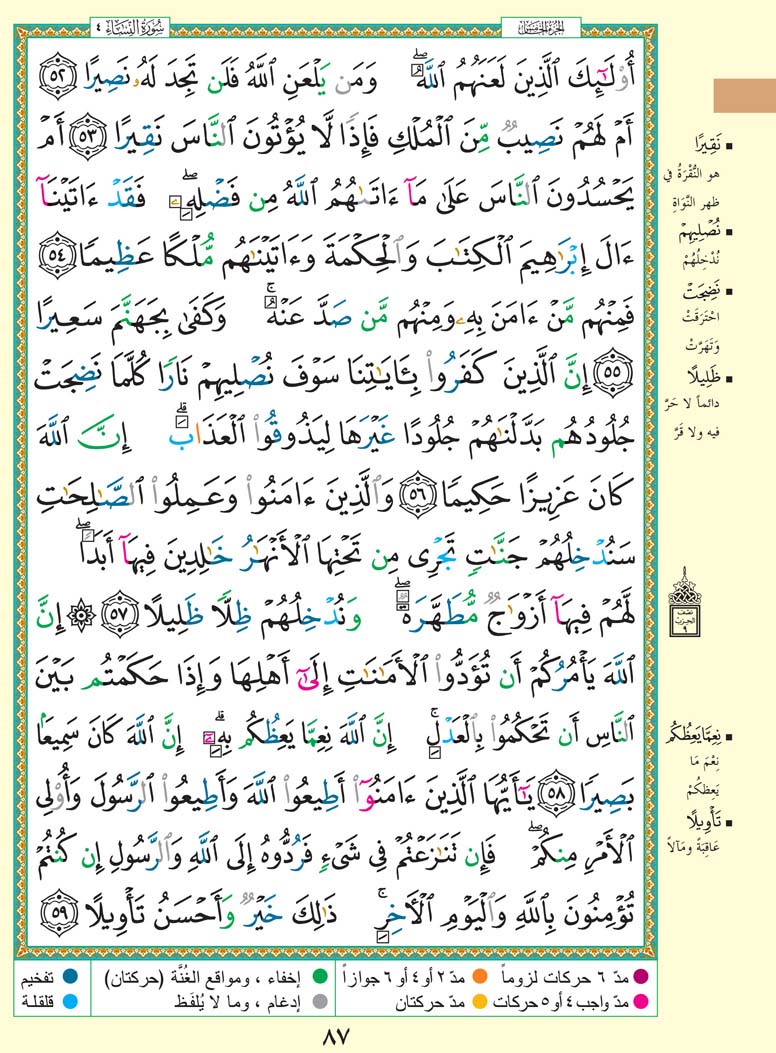 سُورَةُ النِّسَاءِ ٤
الجُزْءُ الخَامِسُ
أُوْلَٰٓئِكَ ٱلَّذِينَ لَعَنَهُمُ ٱللَّهُۖ وَمَن يَلْعَنِ ٱللَّهُ فَلَن تَجِدَ لَهُۥ نَصِيرًا ٥٢
أَمْ لَهُمْ نَصِيبٌ مِّنَ ٱلْمُلْكِ فَإِذًا لَّا يُؤْتُونَ ٱلنَّاسَ نَقِيرًا ٥٣ أَمْ
يَحْسُدُونَ ٱلنَّاسَ عَلَىٰ مَآ ءَاتَىٰهُمُ ٱللَّهُ مِن فَضْلِهِۦۖ فَقَدْ ءَاتَيْنَآ
ءَالَ إِبْرَٰهِيمَ ٱلْكِتَٰبَ وَٱلْحِكْمَةَ وَءَاتَيْنَٰهُم مُّلْكًا عَظِيمًا ٥٤
فَمِنْهُم مَّنْ ءَامَنَ بِهِۦ وَمِنْهُم مَّن صَدَّ عَنْهُۚ وَكَفَىٰ بِجَهَنَّمَ سَعِيرًا
٥٥ إِنَّ ٱلَّذِينَ كَفَرُوا۟ بِـَٔايَٰتِنَا سَوْفَ نُصْلِيهِمْ نَارًا كُلَّمَا نَضِجَتْ
جُلُودُهُم بَدَّلْنَٰهُمْ جُلُودًا غَيْرَهَا لِيَذُوقُوا۟ ٱلْعَذَابَۗ إِنَّ ٱللَّهَ
كَانَ عَزِيزًا حَكِيمًا ٥٦ وَٱلَّذِينَ ءَامَنُوا۟ وَعَمِلُوا۟ ٱلصَّٰلِحَٰتِ
سَنُدْخِلُهُمْ جَنَّٰتٍ تَجْرِى مِن تَحْتِهَا ٱلْأَنْهَٰرُ خَٰلِدِينَ فِيهَآ أَبَدًاۖ
لَّهُمْ فِيهَآ أَزْوَٰجٌ مُّطَهَّرَةٌۖ وَنُدْخِلُهُمْ ظِلًّا ظَلِيلًا ٥٧ ۞ إِنَّ
ٱللَّهَ يَأْمُرُكُمْ أَن تُؤَدُّوا۟ ٱلْأَمَٰنَٰتِ إِلَىٰٓ أَهْلِهَا وَإِذَا حَكَمْتُم بَيْنَ
ٱلنَّاسِ أَن تَحْكُمُوا۟ بِٱلْعَدْلِۚ إِنَّ ٱللَّهَ نِعِمَّا يَعِظُكُم بِهِۦٓۗ إِنَّ ٱللَّهَ كَانَ سَمِيعًۢا
بَصِيرًا ٥٨ يَٰٓأَيُّهَا ٱلَّذِينَ ءَامَنُوٓا۟ أَطِيعُوا۟ ٱللَّهَ وَأَطِيعُوا۟ ٱلرَّسُولَ وَأُو۟لِى
ٱلْأَمْرِ مِنكُمْۖ فَإِن تَنَٰزَعْتُمْ فِى شَىْءٍ فَرُدُّوهُ إِلَى ٱللَّهِ وَٱلرَّسُولِ إِن كُنتُمْ
تُؤْمِنُونَ بِٱللَّهِ وَٱلْيَوْمِ ٱلْأَخِرِۚ ذَٰلِكَ خَيْرٌ وَأَحْسَنُ تَأْوِيلًا ٥٩
▪ نَقِيرًا
هو النُّقْرَةُ في
ظهر النَّوَاةِ
▪ نُصْلِيهِمْ
نُدْخِلُهُمْ
▪ نَضِجَتْ
احْتَرَقَتْ
وَتَهَرَّتْ
▪ ظَلِيلًا
دائماً لا حَرَّ
فيه ولا قَرَّ
نصف
الحزب
٩
▪ نِعِمَّا يَعِظُكُم
نِعْمَ مَا
يَعِظُكُمْ
▪ تَأْوِيلًا
عَاقِبَةً ومَآلاً
مدّ ٦ حركات لزوماً
مدّ ٢ أو ٤ أو ٦ جوازاً
إخفاء ، ومواقع الغُنَّة (حركتان)
تفخيم
مدّ واجب ٤ أو ٥ حركات
مدّ حركتان
إدغام ، وما لا يُلفَظ
قلقلة
٨٧